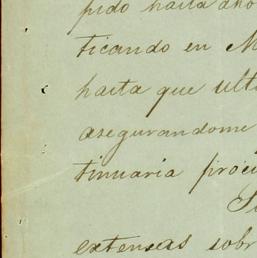 pido hasta aho
ticando en M
hasta que ult
asegurandome
tinuaria proce
extensas sobr